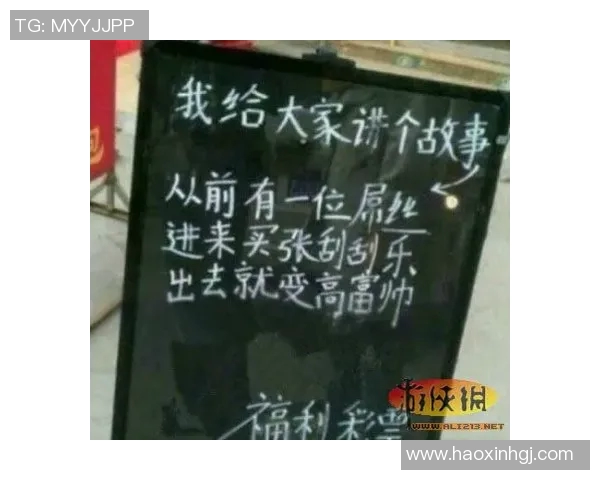 TG: MYYJJPP
我给大家讲个故事
从前有一位屌丝
进来买张刮刮乐
出去就变高富帅
福利彩票
游侠网
WWW.ALI213.NET
www.haoxinhgj.com